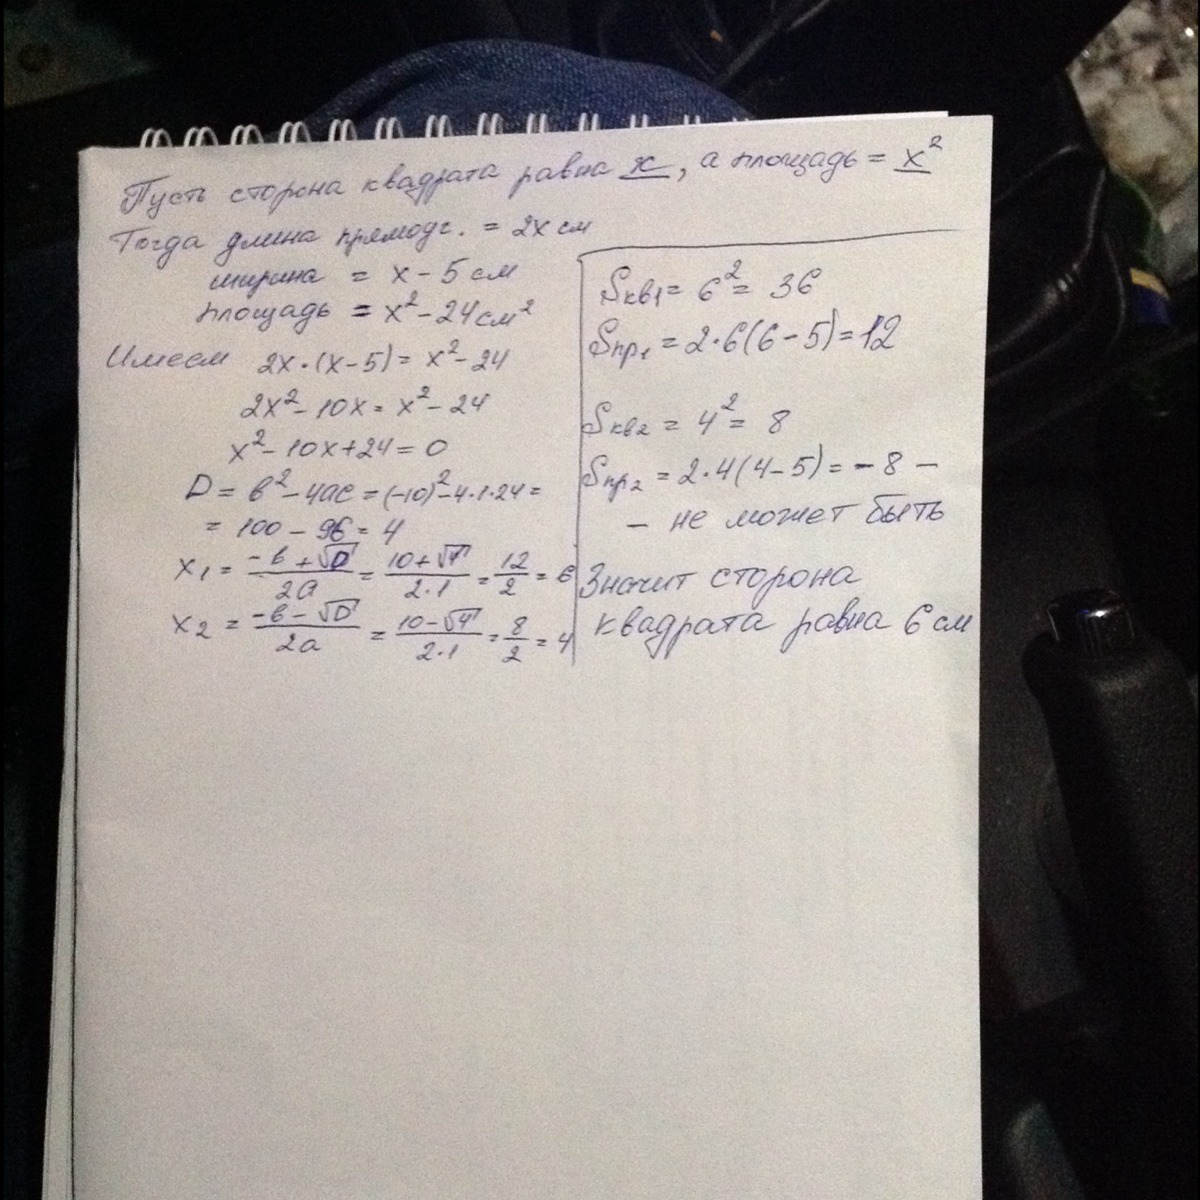 Пусть сторона квадрата равна x, а площадь = x²
Тогда длина прямоуг. = 2x см
ширина = x - 5 см
площадь = x² - 24 см²
Имеем 2x·(x-5) = x² - 24
2x² - 10x = x² - 24
x² - 10x + 24 = 0
D = b² - 4ac = (-10)² - 4·1·24 =
= 100 - 96 = 4
x₁ = (-b + √D)/2a = (10 + √4)/2·1 = 12/2 = 6
x₂ = (-b - √D)/2a = (10 - √4)/2·1 = 8/2 = 4
Sкв1 = 6² = 36
Sпр₁ = 2·6(6-5) = 12
Sкв2 = 4² = 8
Sпр₂ = 2·4(4-5) = -8 -
- не может быть
Значит сторона
квадрата равна 6 см